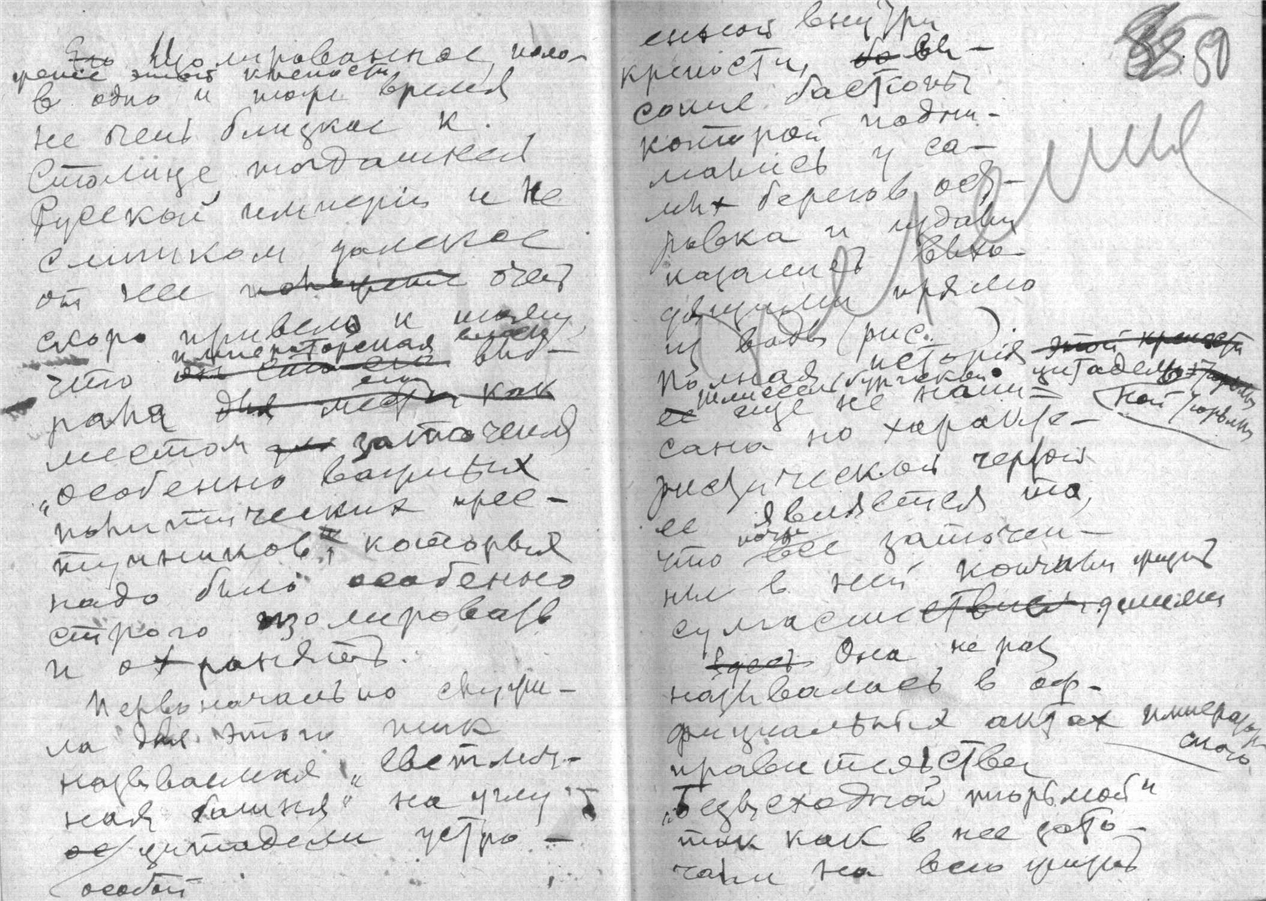 Его Изолированное поло-
жение этой крепости
в одно и тоже время
не очень близкое к
Столице тогдашней
Русской империи и не
слишком далекое
от нее очень
скоро привело к тому,
что императорская власть
он стала выб-
рана для места как ею
местом для заточения
„особенно важных
политических прес-
тупников", которых
надо было особенно
строго изолировать
и охранять.
Первоначально служи-
ла для этого так
называемая „Светлич-
ная башня" на углу
цитадели устро-
особой
енной внутри
крепости, вы-
сокие бастионы
которой подни-
мались у са-
мых берегов ост-
ровка и издали
казались выхо-
дящими прямо
из воды (рис. ).
Полная история этой крепости
Шлиссельбургской цитадели
ной тюрьмы
ее еще не напи-
сана но характе-
ристической чертой
ее является то,
что почти все заточен-
ные в ней кончали жизнь
сумасшествием
здесь Она не раз
называлась в оф-
фициальных актах император-
ского
правительства
„безысходной тюрьмой"
так как в нее зато-
чали на всю жизнь
50